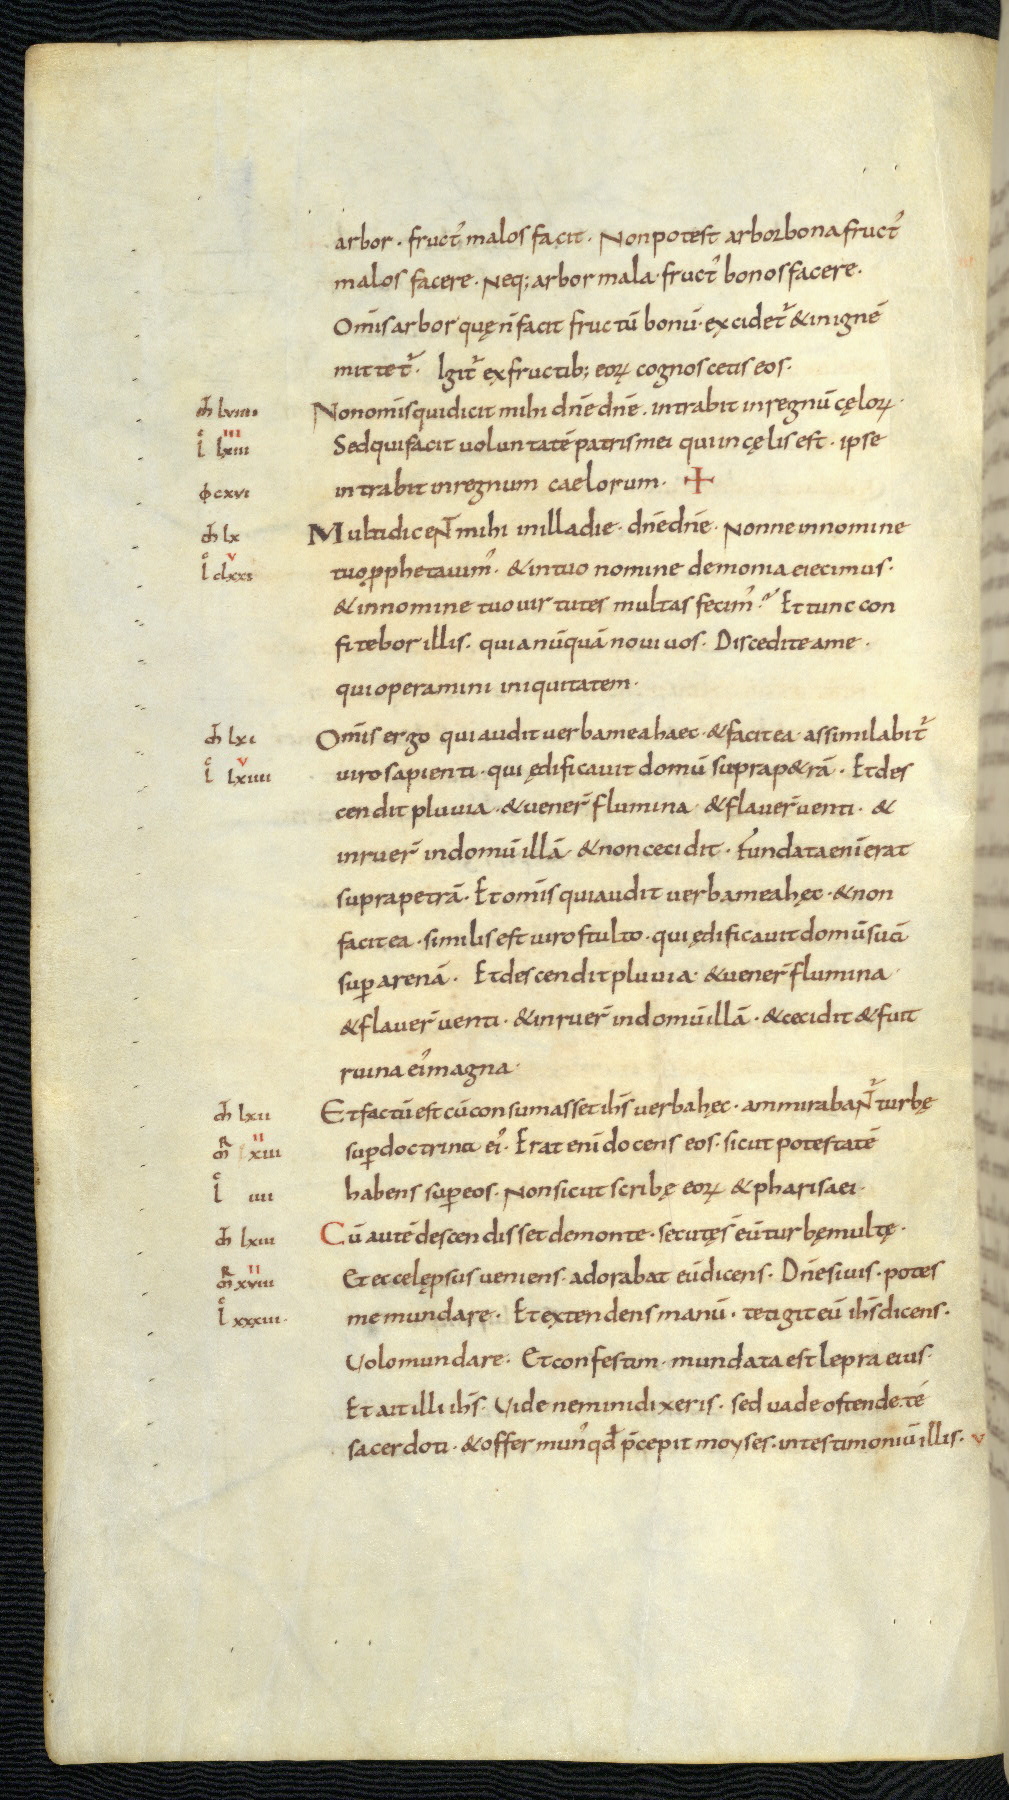 arbor · fruct᾽ malos facit · Non potest arbor bona fruct᾽
malos facere · Neq; arbor mala · fruct᾽ bonos facere ·
Om̄is arbor quę n̄ facit fructū bonū · excidet᷑ & in ignē
mittet᷑ · Igit᷑ ex fructib; eoꝝ cognoscetis eos ·
m̄ lviiii · Non om̄is qui dicit mihi dn̄e dn̄e · intrabit in regnū cęloꝝ ·
l lxiii III Sed qui facit voluntatē patris mei qui in cęlis est · ipse
ф cxvi intrabit in regnum caelorum · +
m̄ lx Multi dicent᷑ mihi in illa die · dn̄e dn̄e · Nonne in nomine
l clxxi v tuo ꝓphetauim᾽ · & in tuo nomine demonia eiecimus ·
& in nomine tuo uirtutes multas fecim᾽ ? Et tunc con
fitebor illis · quia nūquā noui uos · Discedite a me ·
qui operamini iniquitatem ·
m̄ lxi Om̄is ergo qui audit uerba mea haec · & facit ea · assimilabit᷑
l lxiiii v uiro sapienti · qui ędificauit domū supra p&rā · Et des
cendit pluuia · & uener̄ flumina · & flauer̄ uenti · &
inruer̄ in domū illā · & non cecidit · Fundata eni erat
supra petrā · Et om̄is qui audit uerba mea hęc · & non
facit ea · similis est uiro stulto · qui ędificauit domū suā
suꝑ arenā · Et descendit pluuia · & uener̄ flumina ·
& flauer̄ uenti · & inruer̄ in domū illā · & cecidit & fuit
ruina ei᾽ magna ·
m̄ lxii Et factū est cū consumasset ih̄s uerba hęc · ammirabant᷑ turbę
m̄ᴿ xiii II suꝑ doctrina ei᾽ · Erat eni docens eos · sicut potestatē
l iiii habens suꝑ eos · Non sicut scribę eoꝝ & pharisaei ·
m̄ lxiii Cū autē descendisset de monte · secutęs̄ eū turbę multę ·
m̄ᴿ xviii II Et ecce lępsus ueniens · adorabat eū dicens · Dn̄e si uis · potes
l xxxiii · me mundare · Et extendens manū · tetigit eū ih̄s dicens ·
Volo mundare · Et confestim · mundata est lepra eius ·
Et ait illi ih̄s · Vide nemini dixeris · sed uade ostende · té
sacerdoti · & offer mun᾽ qd̄ p̄cepit moyses · in testimoniū illis · v